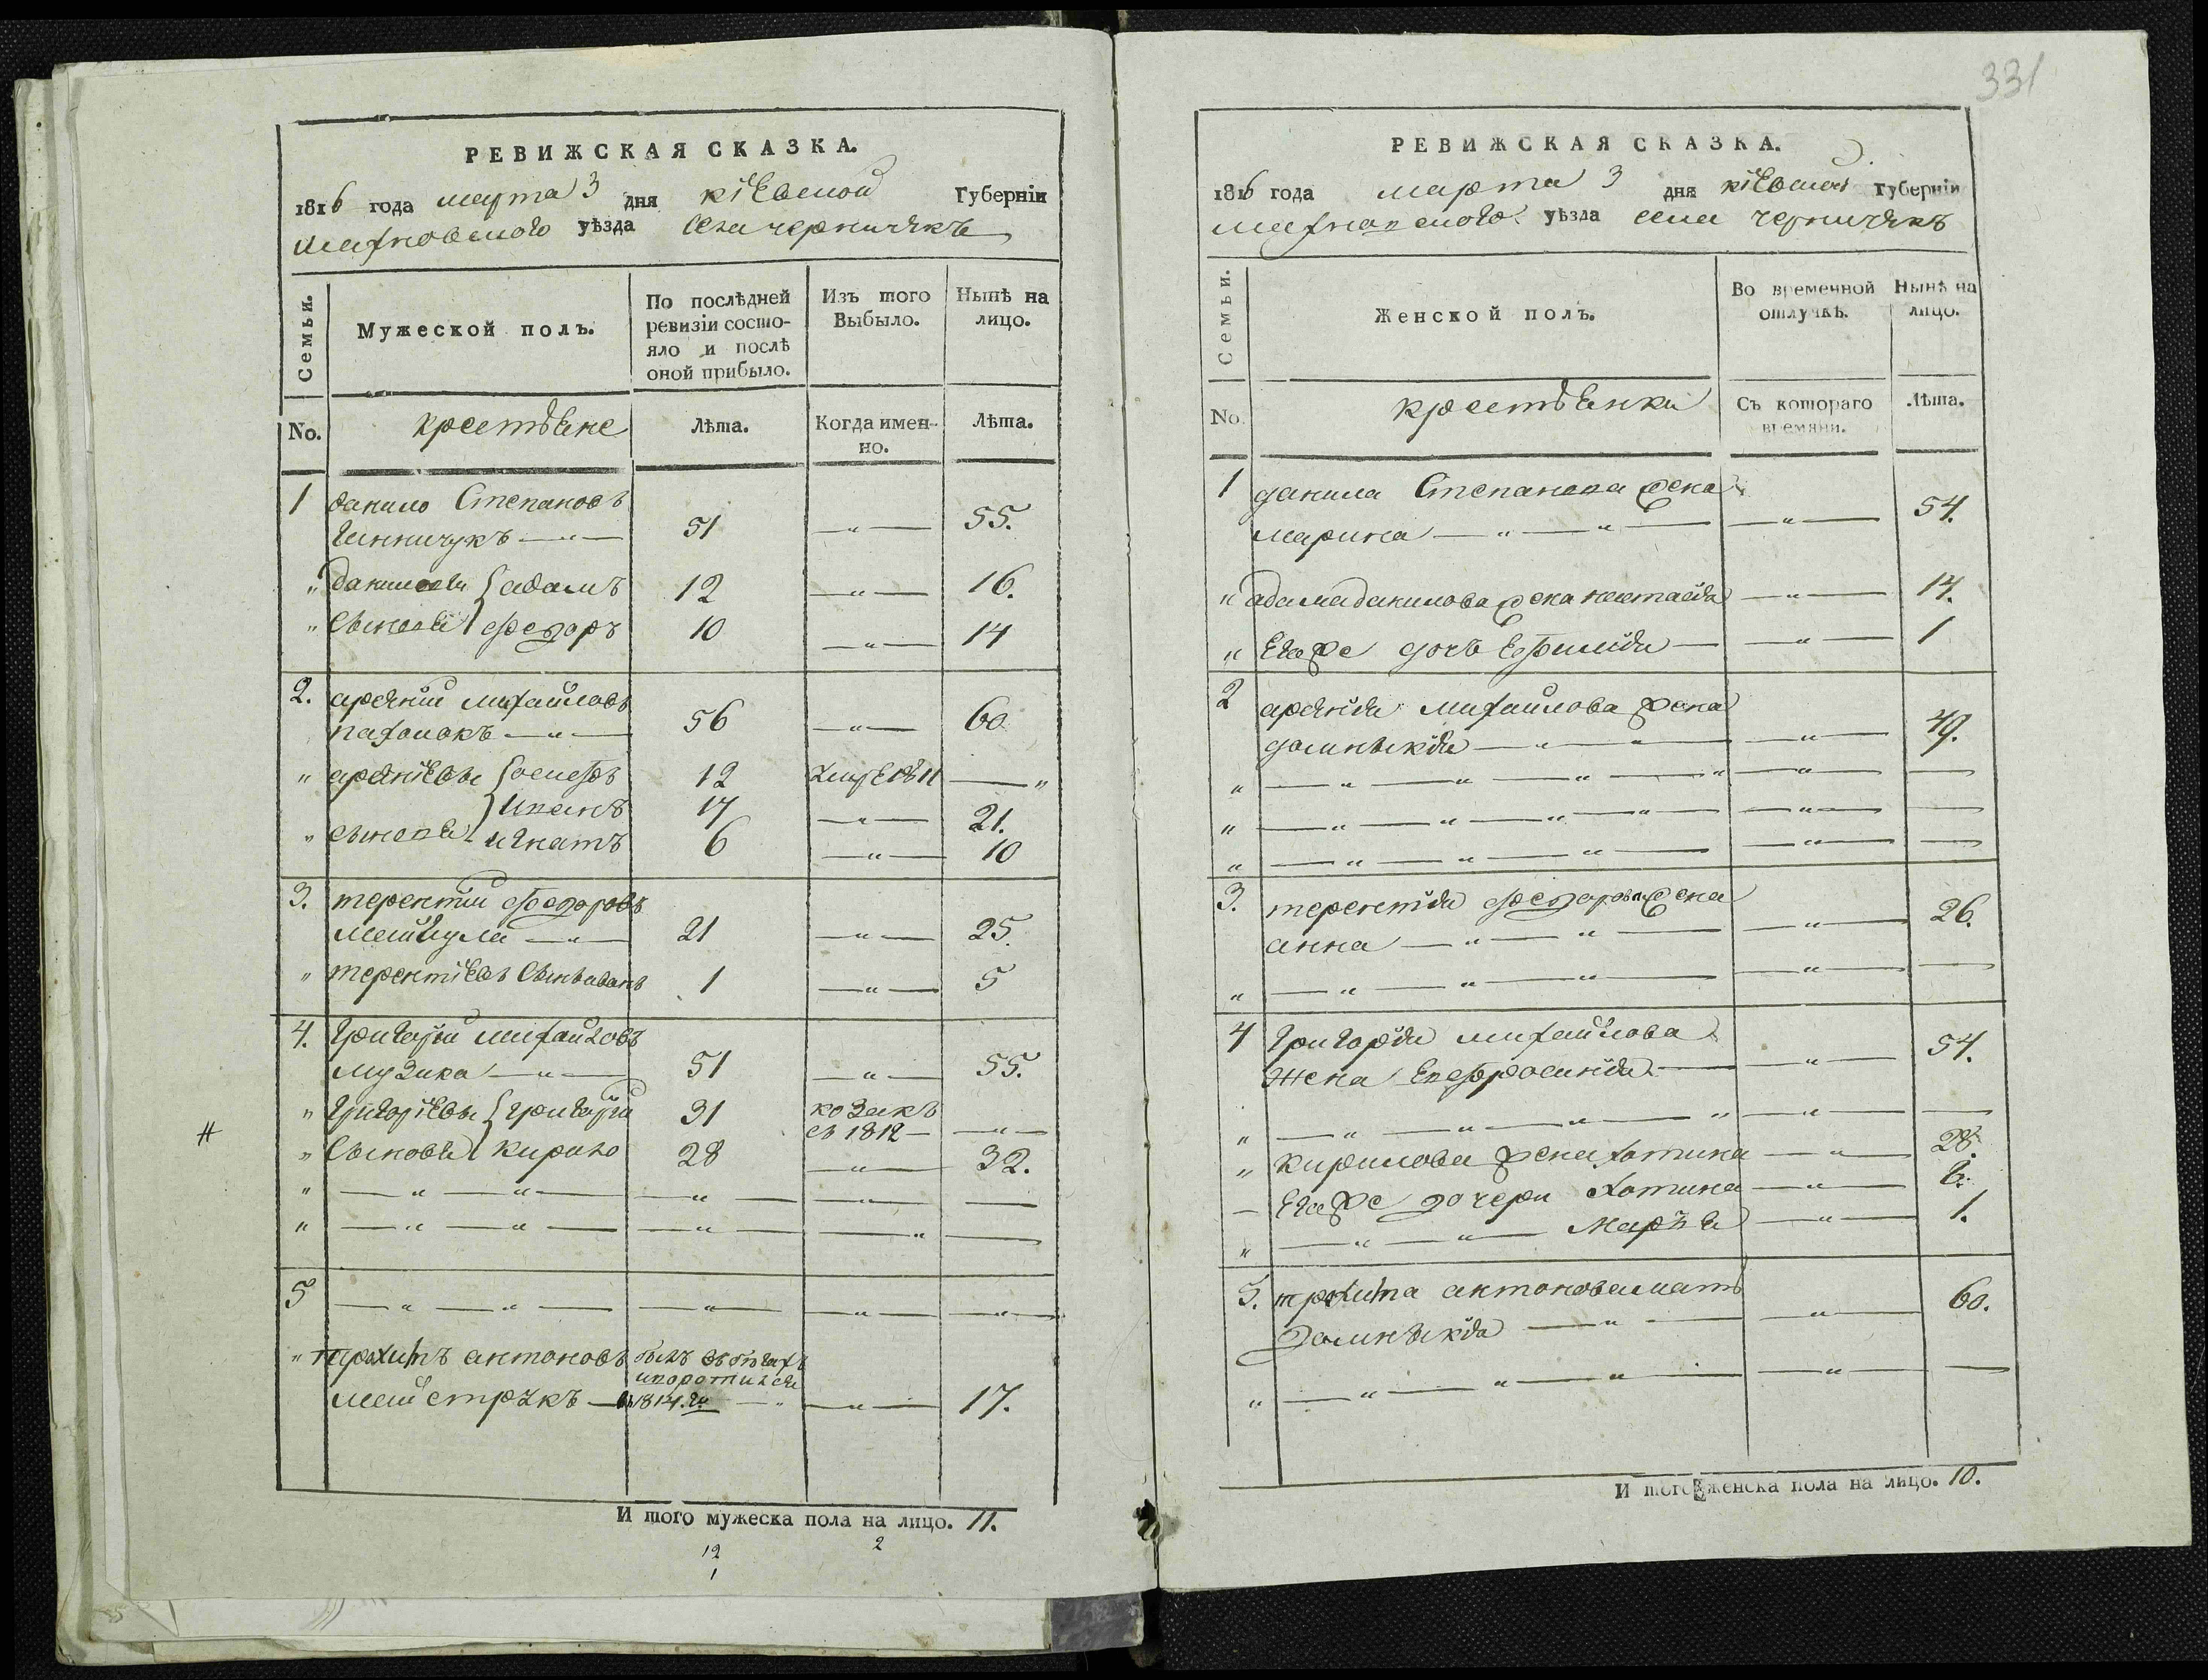 РЕВИЖСКАЯ СКАЗКА.
1816 года марта 3 дня кіевской Губерніи
махновского уѣзда села
Семьи.
Мужеской полъ.
По послѣдней ревизіи состояло и послѣ оной прибыло.
Изъ того Выбыло.
Нынѣ на лицо.
No.
крестяне
Лѣта.
Когда именно.
Лѣта.
1 данило Степановъ
51 — " — 55.
" даниловы адамъ 12 — " — 16.
" Сыновья федоръ 10 — " — 14
2. михайловъ
— " — 56 — " — 60
" осифъ 12 умре 1811 — "
иванъ 17 — " — 21.
" сыновья игнатъ 6 — " — 10
3. терентій федоровъ
— " — 21 — " — 25.
" терентіевъ Сынъ иванъ 1 — " — 5
4. Григорій михайловъ
музика — " — 51 — " — 55.
" Григоріевы григорій 31 козакъ
съ 1812 — — " —
" Сыновья кирило 28 — " — 32.
" — " — " — — " — — " — —
" — " — " — — " — — " —
5 — " — " — — " — — " — — " —
" антоновъ былъ въ бѣгахъ
и
— въ 1814. го — " — " — 17.
И того мужеска пола на лицо. 11.
12 2
1
331
РЕВИЖСКАЯ СКАЗКА.
1816 года марта 3 дня кіевской губерніи
махновского уѣзда села
Семьи.
Женской полъ.
Во временной отлучкѣ.
Нынѣ на лицо.
No.
крестянки
Съ котораго времяни.
Лѣта.
1 данила Степанова жена
марина — " — " — — " — 54.
" адама данилова жена настасія — " — 17.
" Егаже дочь Ефимія — — " — 1
2 михайлова жена
— " — " — — " — 49.
" — " — " — " — " — " — —
" — " — " — " — " — " — —
" — " — " — " — — " — —
3. терентія федорова жена
анна — " — " — — " — 26.
" — " — " — " — — " — —
4 Григорія михайлова
жена Ефросинія — — " — 54.
" — " — " — " — " — " — —
" кирилова жена фотина — " — 28.
— Егаже дочери фотина — " — 6.
" — " — " — марья — " — 1.
5. антонова мать
— " — — " — 60.
" — " — " — " — — " — —
И того женска пола на лицо. 10.